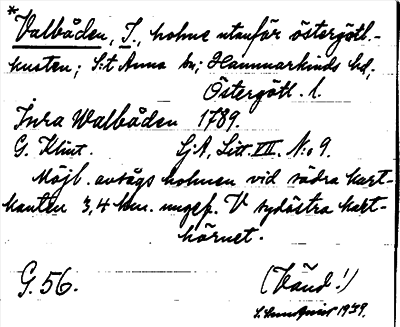 *Valbåden, I., holme utanför östergötl.-
kusten; S:t Anna sn; Hammarkinds hd;
Östergötl. l.
Inra Walbåden 1789.
G. Klint. Sj A, Litt. VII. N:o 9.
Möjl. avsågs holmen vid södra kart-
kanten 3,4 km. ungef. V sydöstra kart-
hörnet.
G. 56. (Vänd!)
1939.